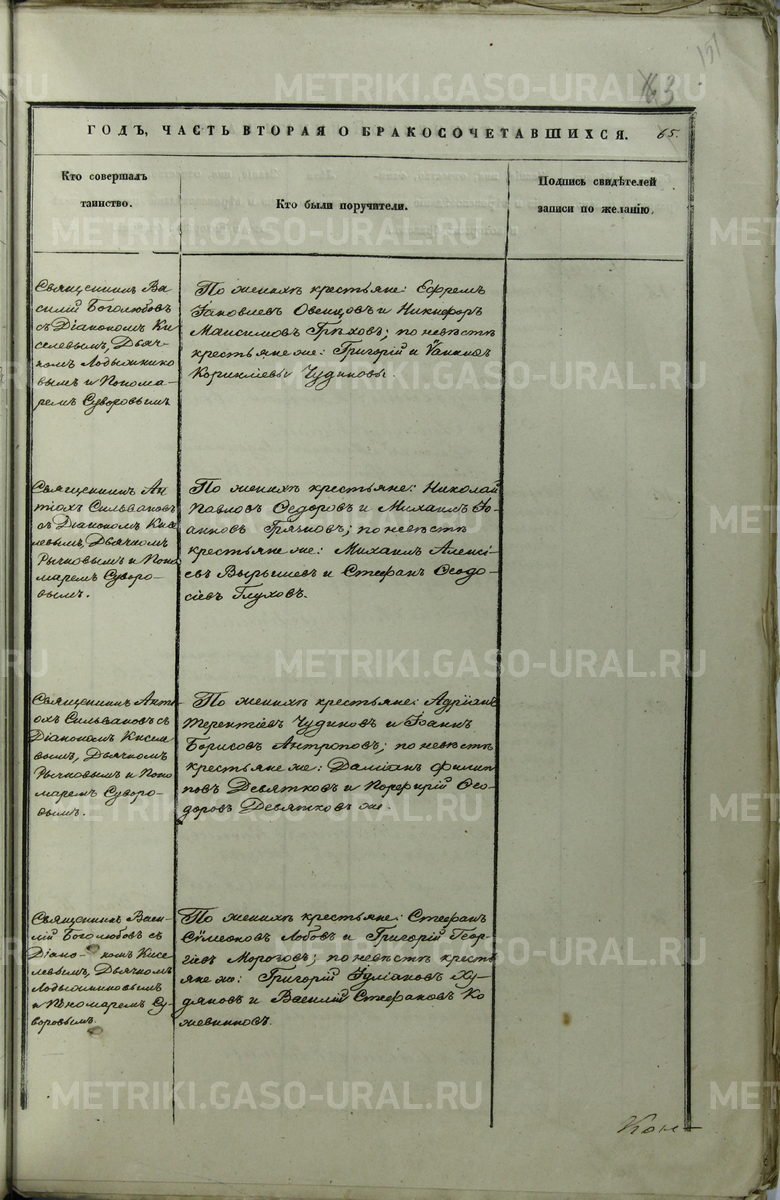 151
163
ГОДЪ, ЧАСТЬ ВТОРАЯ О БРАКОСОЧЕТАВШИХСЯ.
65.
Кто совершалъ
таинство.
Кто были поручители.
Подпись свидѣтелей
записи по желанію.
Священникъ Ва
силій Боголюбовъ
съ Діакономъ Ки
селевымъ, Дьяч-
комъ Лодыжнико
вымъ и Понома-
ремъ Суворовымъ
По женихѣ крестьяне: Ефремъ
Іаковлевъ Овенцовъ и Никифоръ
Максимовъ Грѣховъ; по невѣстѣ
крестьяне же: Григорій и
Чудиновы.
Священникъ Ан
тіохъ Сильвановъ
съ Діакономъ Кисе
левымъ, Дьячкомъ
Рычковымъ и Поно
маремъ Суворо-
вымъ.
По женихѣ крестьяне: Николай
Павловъ Ѳедоровъ и Михаилъ Іо-
анновъ; по невѣстѣ
крестьяне же: Михаилъ Алексі-
евъ и Стефанъ Ѳеодо-
сіевъ Глуховъ.
Священникъ Анті-
охъ Сильвановъ съ
Діакономъ Кисел-
вымъ, Дьячкомъ
Рычковымъ и Поно
маремъ Суворо-
вымъ.
По женихѣ крестьяне: Адріанъ
Терентіевъ Чудиновъ и Іоаннъ
Борисовъ Антроповъ; по невѣстѣ
крестьяне же: Даміанъ Филип
повъ Девятковъ и Порфирій Ѳео-
доровъ Девятковъ же.
Священникъ Васи-
лій Боголюбовъ съ
Діако- номъ Кисе-
левымъ, Дьячкомъ
Лодыжниковымъ
и Пономаремъ Су-
воровымъ.
По женихѣ крестьяне: Стефанъ
Сѵмеоновъ Лобовъ и Григорій Геор-
гіевъ Морозовъ; по невѣстѣ кресть
яне же: Григорій Іуліановъ Ху-
дяковъ и Василій Стефановъ Ко
жевниковъ.
Кон-
METRIKI.GASO-URAL.RU